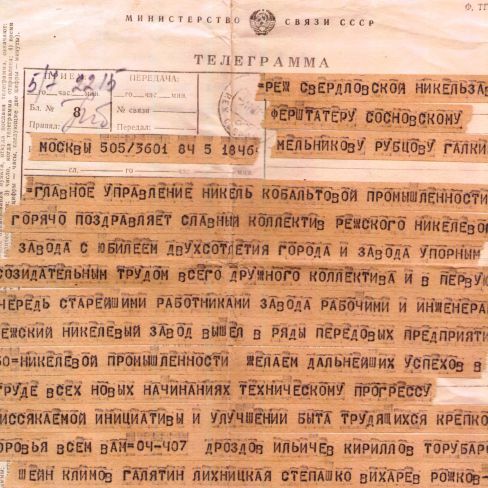 Ф. ТГ
МИНИСТЕРСТВО СВЯЗИ СССР
ТЕЛЕГРАММА
ПРИЕМ
ПЕРЕДАЧА:
5/7 2215
го час. мин.
Бл. № 8
№ связи
Принял:
Передал:
=РЕЖ СВЕРДЛОВСКОЙ НИКЕЛЬЗА
ФЕРШТАТЕРУ СОСНОВСКОМУ
МОСКВЫ 505/3601 84 5 1846=
МЕЛЬНИКОВУ РУБЦОВУ ГАЛКИ
=ГЛАВНОЕ УПРАВЛЕНИЕ НИКЕЛЬ КОБАЛЬТОВОЙ ПРОМЫШЛЕННОСТИ
ГОРЯЧО ПОЗДРАВЛЯЕТ СЛАВНЫЙ КОЛЛЕКТИВ РЕЖСКОГО НИКЕЛЕВОГ
ЗАВОДА С ЮБИЛЕЕМ ДВУХСОТЛЕТИЯ ГОРОДА И ЗАВОДА УПОРНЫМ
СОЗИДАТЕЛЬНЫМ ТРУДОМ ВСЕГО ДРУЖНОГО КОЛЛЕКТИВА И В ПЕРВУЮ
ЧЕРЕДЬ СТАРЕЙШИМИ РАБОТНИКАМИ ЗАВОДА РАБОЧИМИ И ИНЖЕНЕРА
ЕЖСКИЙ НИКЕЛЕВЫЙ ЗАВОД ВЫШЕЛ В РЯДЫ ПЕРЕДОВЫХ ПРЕДПРИЯТИ
50=НИКЕЛЕВОЙ ПРОМЫШЛЕННОСТИ ЖЕЛАЕМ ДАЛЬНЕЙШИХ УСПЕХОВ В
ТРУДЕ ВСЕХ НОВЫХ НАЧИНАНИЯХ ТЕХНИЧЕСКОМУ ПРОГРЕССУ
ИССЯКАЕМОЙ ИНИЦИАТИВЫ И УЛУЧШЕНИИ БЫТА ТРУДЯЩИХСЯ КРЕПКО
ОРОВЬЯ ВСЕМ ВАМ=04-407 ДРОЗДОВ ИЛЬИЧЕВ КИРИЛЛОВ ТОРУБАРО
ШЕИН КЛИМОВ ГАЛЯТИН ЛИХНИЦКАЯ СТЕПАШКО ВИХАРЕВ РОЖКОВ-